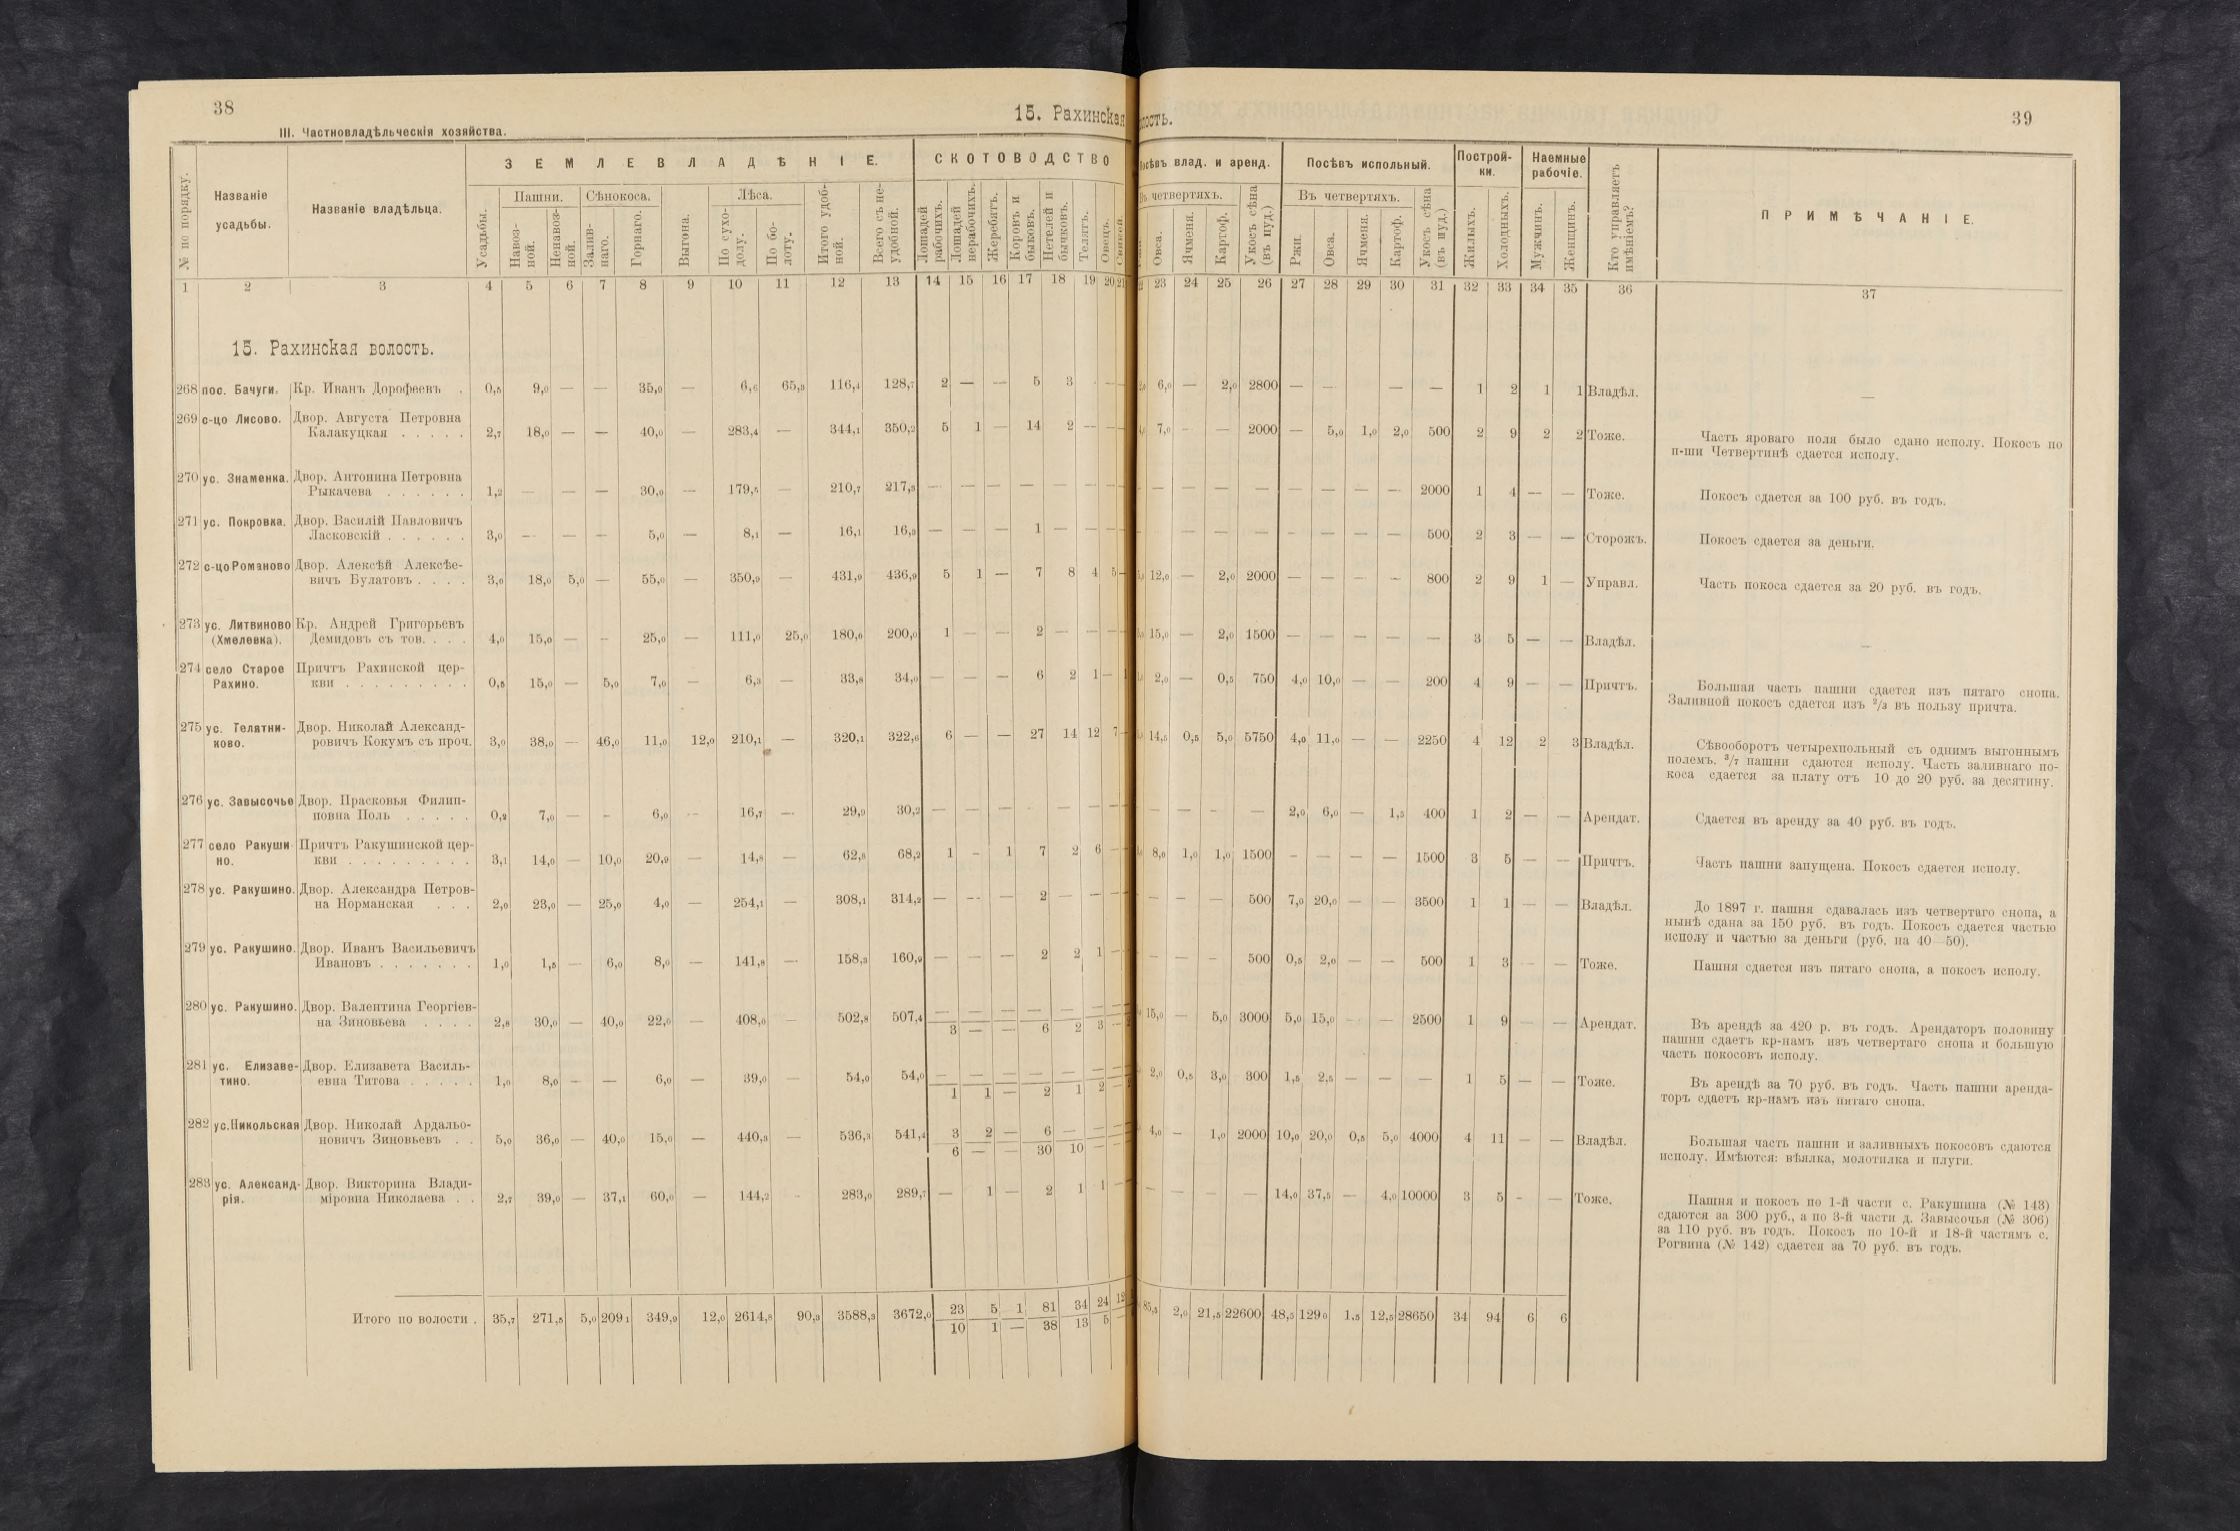 38
15. Рахинская
III. Частновладѣльческія хозяйства.
№ по порядку.
Названіе
усадьбы.
Названіе владѣльца.
ЗЕМЛЕВЛАДѢНІЕ.
Усадьбы.
Пашни.
Навоз-
ной.
Ненавоз-
ной.
Сѣнокоса.
Залив-
наго.
Горнаго.
Выгона.
Лѣса.
По сухо-
долу.
По бо-
лоту.
Итого удоб-
ной.
Всего съ не-
удобной.
СКОТОВОДСТВО
Лошадей
рабочихъ.
Лошадей
нерабочихъ.
Жеребятъ.
Коровъ и
быковъ.
Нетелей и
бычковъ.
Телятъ.
Овецъ.
Свиней.
1 2 3 4 5 6 7 8 9 10 11 12 13 14 15 16 17 18 19 20 21
15. Рахинская волость.
268 пос. Бачуги. Кр. Иванъ Дорофеевъ . 0,5 9,0 — — 35,0 — 6,6 65,3 116,4 128,7 2 — — 5 3 — —
269 с-цо Лисово. Двор. Августа Петровна
Калакуцкая . . . . . 2,7 18,0 — — 40,0 — 283,4 — 344,1 350,2 5 1 — 14 2 — — —
270 ус. Знаменка. Двор. Антонина Петровна
Рыкачева . . . . . . 1,2 — — — 30,0 — 179,5 — 210,7 217,3 — — — — — — — —
271 ус. Покровка. Двор. Василій Павловичъ
Ласковскій . . . . . . 3,0 — — — 5,0 — 8,1 — 16,1 16,3 — — — 1 — — — —
272 с-цо Романово Двор. Алексѣй Алексѣе-
вичъ Булатовъ . . . . 3,0 18,0 5,0 — 55,0 — 350,9 — 431,9 436,9 5 1 — 7 8 4 5 —
273 ус. Литвиново Кр. Андрей Григорьевъ
(Хмелевка). Демидовъ съ тов. . . . 4,0 15,0 — — 25,0 — 111,0 25,0 180,0 200,0 1 — — 2 — — — —
274 село Старое Причтъ Рахинской цер-
Рахино. кви . . . . . . . . . 0,5 15,0 — 5,0 7,0 — 6,3 — 33,8 34,0 — — — 6 2 1 — 1
275 ус. Телятни- Двор. Николай Александ-
ково. ровичъ Кокумъ съ проч. 3,0 38,0 — 46,0 11,0 12,0 210,1 — 320,1 322,6 6 — — 27 14 12 7 —
276 ус. Завысочье Двор. Прасковья Филип-
повна Поль . . . . . 0,2 7,0 — — 6,0 — 16,7 — 29,9 30,2 — — — — — — — —
277 село Ракуши Причтъ Ракушинской цер-
но. кви . . . . . . . . . 3,1 14,0 — 10,0 20,9 — 14,8 — 62,8 68,2 1 — 1 7 2 6 — —
278 ус. Ракушино. Двор. Александра Петров-
на Норманская . . . 2,0 23,0 — 25,0 4,0 — 254,1 — 308,1 314,2 — — — 2 — — — —
279 ус. Ракушино. Двор. Иванъ Васильевичъ
Ивановъ . . . . . . . 1,0 1,5 — 6,0 8,0 — 141,8 — 158,3 160,9 — — — 2 2 1 — —
280 ус. Ракушино. Двор. Валентина Георгіев-
на Зиновьева . . . . 2,8 30,0 — 40,0 22,0 — 408,0 — 502,8 507,4 — — — — — — — —
3 — — 6 2 3 — 2
281 ус. Елизаве- Двор. Елизавета Василь-
тино. евна Титова . . . . . 1,0 8,0 — — 6,0 — 39,0 — 54,0 54,0 — — — — — — — —
1 1 — 2 1 2 — 2
282 ус. Никольская Двор. Николай Ардальо-
новичъ Зиновьевъ . . 5,0 36,0 — 40,0 15,0 — 440,3 — 536,3 541,4 3 2 — 6 — — — —
6 — — 30 10 — — —
283 ус. Александ- Двор. Викторина Влади-
рія. міровна Николаева . . 2,7 39,0 — 37,1 60,0 — 144,2 — 283,0 289,7 — 1 — 2 1 1 — —
Итого по волости . 35,7 271,5 5,0 209,1 349,9 12,0 2614,8 90,3 3588,3 3672,0 23 5 1 81 34 24 12
10 1 — 38 13 5 —
39
волость.
Посѣвъ влад. и аренд.
Въ четвертяхъ.
Овса.
Ячменя.
Картоф.
Укосъ сѣна
(въ пуд.)
Посѣвъ испольный.
Въ четвертяхъ.
Ржи.
Овса.
Ячменя.
Картоф.
Укосъ сѣна
(въ пуд.)
Построй-
ки.
Жилыхъ.
Холодныхъ.
Наемные
рабочіе.
Мужчинъ.
Женщинъ.
Кто управляетъ
имѣніемъ?
ПРИМѢЧАНІЕ.
22 23 24 25 26 27 28 29 30 31 32 33 34 35 36 37
6,0 — 2,0 2800 — — — — 1 2 1 1 Владѣл. —
7,0 — — 2000 — 5,0 1,0 2,0 500 2 9 2 2 Тоже. Часть яроваго поля было сдано исполу. Покосъ по
п-ши Четвертинѣ сдается исполу.
— — — — — — — — — 2000 1 4 — — Тоже. Покосъ сдается за 100 руб. въ годъ.
— — — — — — — — 500 2 3 — — Сторожъ. Покосъ сдается за деньги.
12,0 — 2,0 2000 — — — — 800 2 9 1 — Управл. Часть покоса сдается за 20 руб. въ годъ.
15,0 — 2,0 1500 — — — — — 3 5 — — Владѣл. —
2,0 — 0,5 750 4,0 10,0 — — 200 4 9 — — Причтъ. Большая часть пашни сдается изъ пятаго снопа.
Заливной покосъ сдается изъ 2/3 въ пользу причта.
14,5 0,5 5,0 5750 4,0 11,0 — — 2250 4 12 2 3 Владѣл. Сѣвооборотъ четырехпольный съ однимъ выгоннымъ
полемъ. 3/7 пашни сдаются исполу. Часть заливнаго по-
коса сдается за плату отъ 10 до 20 руб. за десятину.
— — — — — 2,0 6,0 — 1,5 400 1 2 — — Арендат. Сдается въ аренду за 40 руб. въ годъ.
8,0 1,0 1,0 1500 — — — — 1500 3 5 — — Причтъ. Часть пашни запущена. Покосъ сдается исполу.
— — — — 500 7,0 20,0 — — 3500 1 1 — — Владѣл. До 1897 г. пашня сдавалась изъ четвертаго снопа, а
нынѣ сдана за 150 руб. въ годъ. Покосъ сдается частью
исполу и частью за деньги (руб. на 40—50).
— — — — 500 0,5 2,0 — — 500 1 3 — — Тоже. Пашня сдается изъ пятаго снопа, а покосъ исполу.
15,0 — 5,0 3000 5,0 15,0 — — 2500 1 9 — — Арендат. Въ арендѣ за 420 р. въ годъ. Арендаторъ половину
пашни сдаетъ кр-намъ изъ четвертаго снопа и большую
часть покосовъ исполу.
2,0 0,5 3,0 300 1,5 2,5 — — — 1 5 — — Тоже. Въ арендѣ за 70 руб. въ годъ. Часть пашни аренда-
торъ сдаетъ кр-намъ изъ пятаго снопа.
4,0 — 1,0 2000 10,0 20,0 0,5 5,0 4000 4 11 — — Владѣл. Большая часть пашни и заливныхъ покосовъ сдаются
исполу. Имѣются: вѣялка, молотилка и плуги.
— — — — 14,0 37,5 — 4,0 10000 3 5 - — Тоже. Пашня и покосъ по 1-й части с. Ракушина (№ 143)
сдаются за 300 руб., а по 3-й части д. Завысочья (№ 306)
за 110 руб. въ годъ. Покосъ по 10-й и 18-й частямъ с.
Рогвина (№ 142) сдается за 70 руб. въ годъ.
85,5 2,0 21,5 22600 48,5 129,0 1,5 12,5 28650 34 94 6 6